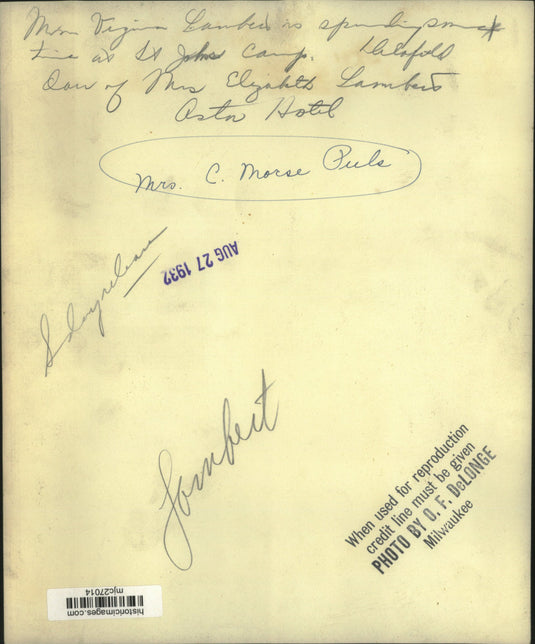 Miss Virginia Lambert is spending some
time at St Johns Camp.
Dau of Mrs Elizabeth Lambert
Astor Hotel
Mrs. C. Morse Puls
AUG 27 1932
Lambert
When used for reproduction
credit line must be given
PHOTO BY O. F. DeLONGE
Milwaukee
historicimages.com
mjc27014